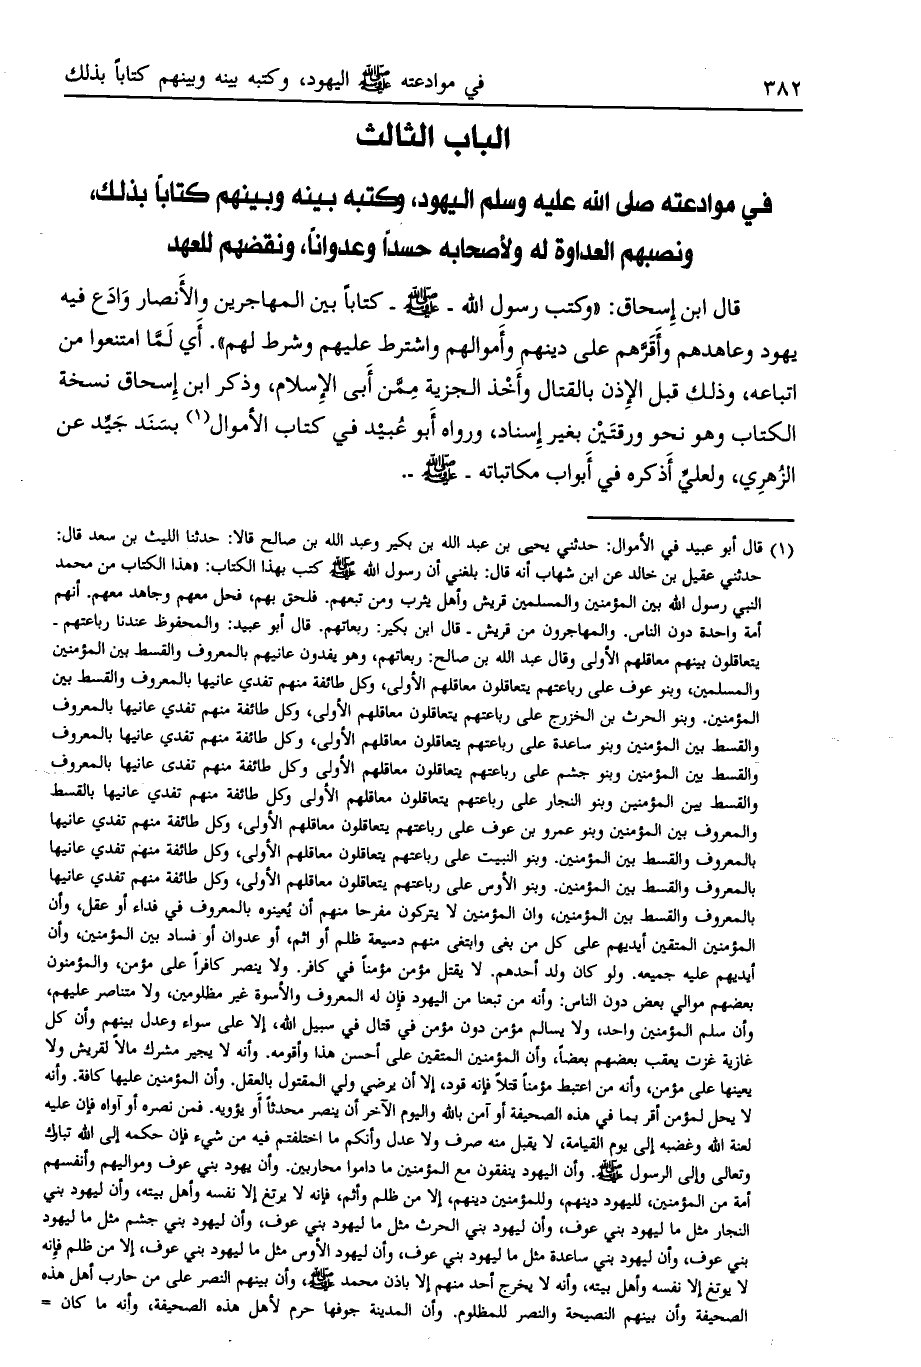 ٣٨٢ في موادعته ﷺ اليهود، وكتبه بينه وبينهم كتاباً بذلك
الباب الثالث
في موادعته صلى الله عليه وسلم اليهود، وكتبه بينه وبينهم كتاباً بذلك،
ونصبهم العداوة له ولأصحابه حسداً وعدواناً، ونقضهم للعهد
قال ابن إسحاق: «وكتب رسول الله ـ ﷺ ـ كتاباً بين المهاجرين والأنصار وَادَع فيه
يهود وعاهدهم وأَقرَّهم على دينهم وأموالهم واشترط عليهم وشرط لهم». أي لَمَّا امتنعوا من
اتباعه، وذلك قبل الإذن بالقتال وأَخْذ الجزية مِمَّن أَبى الإسلام، وذكر ابن إسحاق نسخة
الكتاب وهو نحو ورقتَيْن بغير إسناد، ورواه أَبو عُبيْد في كتاب الأموال(١) بسَنَد جَيِّد عن
الزُهرِي، ولعليِّ أَذكره في أَبواب مكاتباته ـ ﷺ ـ.
(١) قال أبو عبيد في الأموال: حدثني يحيى بن عبد الله بن بكير وعبد الله بن صالح قالا: حدثنا الليث بن سعد قال:
حدثني عقيل بن خالد عن ابن شهاب أنه قال: بلغني أن رسول الله ﷺ كتب بهذا الكتاب: «هذا الكتاب من محمد
النبي رسول الله بين المؤمنين والمسلمين قريش وأهل يثرب ومن تبعهم. فلحق بهم، فحل معهم وجاهد معهم. أنهم
أمة واحدة دون الناس. والمهاجرون من قريش ـ قال ابن بكير: ربعاتهم. قال أبو عبيد: والمحفوظ عندنا رباعتهم ـ
يتعاقلون بينهم معاقلهم الأولى وقال عبد الله بن صالح: ربعاتهم، وهو يفدون عانيهم بالمعروف والقسط بين المؤمنين
والمسلمين، وبنو عوف على رباعتهم يتعاقلون معاقلهم الأولى، وكل طائفة منهم تفدي عانيها بالمعروف والقسط بين
المؤمنين. وبنو الحرث بن الخزرج على رباعتهم يتعاقلون معاقلهم الأولى، وكل طائفة منهم تفدي عانيها بالمعروف
والقسط بين المؤمنين وبنو ساعدة على رباعتهم يتعاقلون معاقلهم الأولى، وكل طائفة منهم تفدي عانيها بالمعروف
والقسط بين المؤمنين وبنو جشم على رباعتهم يتعاقلون معاقلهم الأولى وكل طائفة منهم تفدى عانيها بالمعروف
والقسط بين المؤمنين وبنو النجار على رباعتهم يتعاقلون معاقلهم الأولى وكل طائفة منهم تفدي عانيها بالقسط
والمعروف بين المؤمنين وبنو عمرو بن عوف على رباعتهم يتعاقلون معاقلهم الأولى، وكل طائفة منهم تفدي عانيها
بالمعروف والقسط بين المؤمنين. وبنو النبيت على رباعتهم يتعاقلون معاقلهم الأولى، وكل طائفة منهم تفدي عانيها
بالمعروف والقسط بين المؤمنين. وبنو الأوس على رباعتهم يتعاقلون معاقلهم الأولى، وكل طائفة منهم تفدي عانيها
بالمعروف والقسط بين المؤمنين، وان المؤمنين لا يتركون مفرحا منهم أن يُعينوه بالمعروف في فداء أو عقل، وأن
المؤمنين المتقين أيديهم على كل من بغى وابتغى منهم دسيعة ظلم أو اثم، أو عدوان أو فساد بين المؤمنين، وأن
أيديهم عليه جميعه. ولو كان ولد أحدهم. لا يقتل مؤمن مؤمناً في كافر. ولا ينصر كافراً على مؤمن، والمؤمنون
بعضهم موالي بعض دون الناس: وأنه من تبعنا من اليهود فإن له المعروف والأسوة غير مظلومين، ولا متناصر عليهم،
وأن سلم المؤمنين واحد، ولا يسالم مؤمن دون مؤمن في قتال في سبيل الله، إلا على سواء وعدل بينهم وأن كل
غازية غزت يعقب بعضهم بعضاً، وأن المؤمنين المتقين على أحسن هذا وأقومه. وأنه لا يجير مشرك مالاً لقريش ولا
يعينها على مؤمن، وأنه من اعتبط مؤمناً قتلاً فإنه قود، إلا أن يرضي ولي المقتول بالعقل. وأن المؤمنين عليها كافة. وأنه
لا يحل لمؤمن أقر بما في هذه الصحيفة أو آمن بالله واليوم الآخر أن ينصر محدثاً أو يؤويه. فمن نصره أو آواه فإن عليه
لعنة الله وغضبه إلى يوم القيامة، لا يقبل منه صرف ولا عدل وأنكم ما اختلفتم فيه من شيء فإن حكمه إلى الله تبارك
وتعالى وإلى الرسول ﷺ. وأن اليهود ينفقون مع المؤمنين ما داموا محاربين. وأن يهود بني عوف ومواليهم وأنفسهم
أمة من المؤمنين، لليهود دينهم، وللمؤمنين دينهم، إلا من ظلم وأثم، فإنه لا يرتغ إلا نفسه وأهل بيته، وأن ليهود بني
النجار مثل ما ليهود بني عوف، وأن ليهود بني الحرث مثل ما ليهود بني عوف، وأن ليهود بني جشم مثل ما ليهود
بني عوف، وأن ليهود بني ساعدة مثل ما ليهود بني عوف، وأن ليهود الأوس مثل ما ليهود بني عوف، إلا من ظلم فإنه
لا يوتغ إلا نفسه وأهل بيته، وأنه لا يخرج أحد منهم إلا باذن محمد ﷺ، وأن بينهم النصر على من حارب أهل هذه
الصحيفة وأن بينهم النصيحة والنصر للمظلوم. وأن المدينة جوفها حرم لأهل هذه الصحيفة، وأنه ما كان =